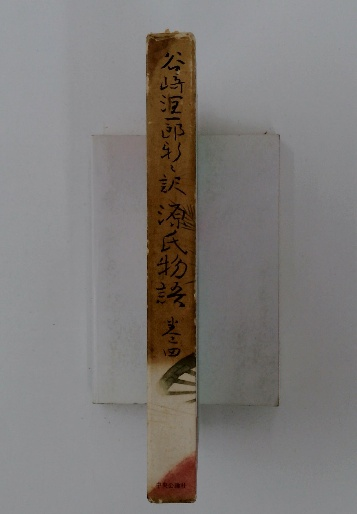 谷崎潤一郎新々訳 源氏物語 巻之四
中央公論社